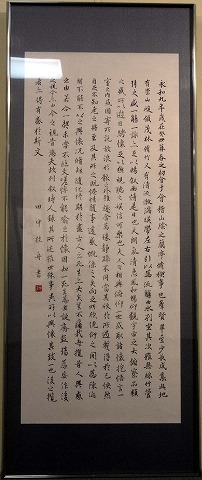 永和九年歲在癸丑暮春之初會于會稽山陰之蘭亭脩禊事也羣賢畢至少長咸集此地
有崇山峻領茂林脩竹又有清流激湍暎帶左右引以爲流觴曲水列坐其次雖無絲竹管
弦之盛一觴一詠亦足以暢敘幽情是日也天朗氣清惠風和暢仰觀宇宙之大俯察品類
之盛所以遊目騁懷足以極視聽之娛信可樂也夫人之相與俯仰一世或取諸懷抱悟言一
室之內或因寄所託放浪形骸之外雖趣舍萬殊靜躁不同當其欣於所遇蹔得於己快然
自足不知老之將至及其所之既惓情隨事遷感慨係之矣向之所欣俛仰之閒以爲陳迹
猶不能不以之興懷況脩短隨化終期於盡古人云死生亦大矣豈不痛哉每攬昔人興感
之由若合一契未嘗不臨文嗟悼不能喻之於懷固知一死生爲虛誕齊彭殤爲妄作後
之視今亦由今之視昔悲夫故列敘時人錄其所述雖世殊事異所以興懷其致一也後之攬
者亦將有感於斯文
田中 舟 書